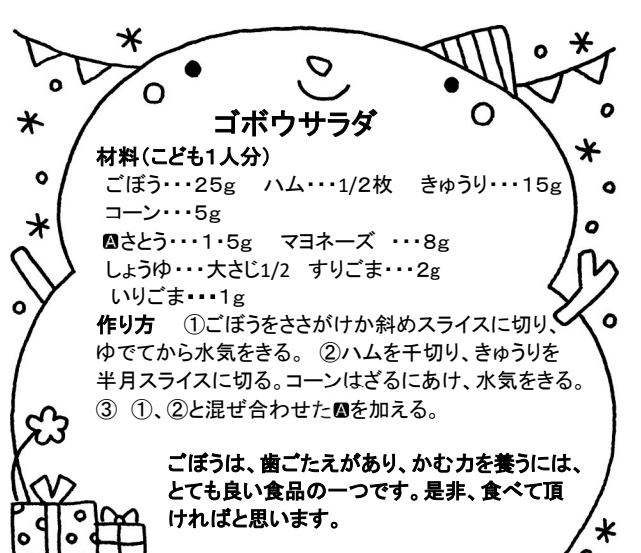 ゴボウサラダ
材料（こども１人分）
ごぼう・・・２５ｇ　ハム・・・1/2枚　きゅうり・・・１５ｇ
コーン・・・５ｇ
🅰さとう・・・１・５ｇ　マヨネーズ　・・・８ｇ
しょうゆ・・・大さじ1/2　すりごま・・・２ｇ
いりごま・・・１ｇ
作り方　①ごぼうをささがけか斜めスライスに切り、
ゆでてから水気をきる。　②ハムを千切り、きゅうりを
半月スライスに切る。コーンはざるにあけ、水気をきる。
③　①、②と混ぜ合わせた🅰を加える。
ごぼうは、歯ごたえがあり、かむ力を養うには、
とても良い食品の一つです。是非、食べて頂
ければと思います。